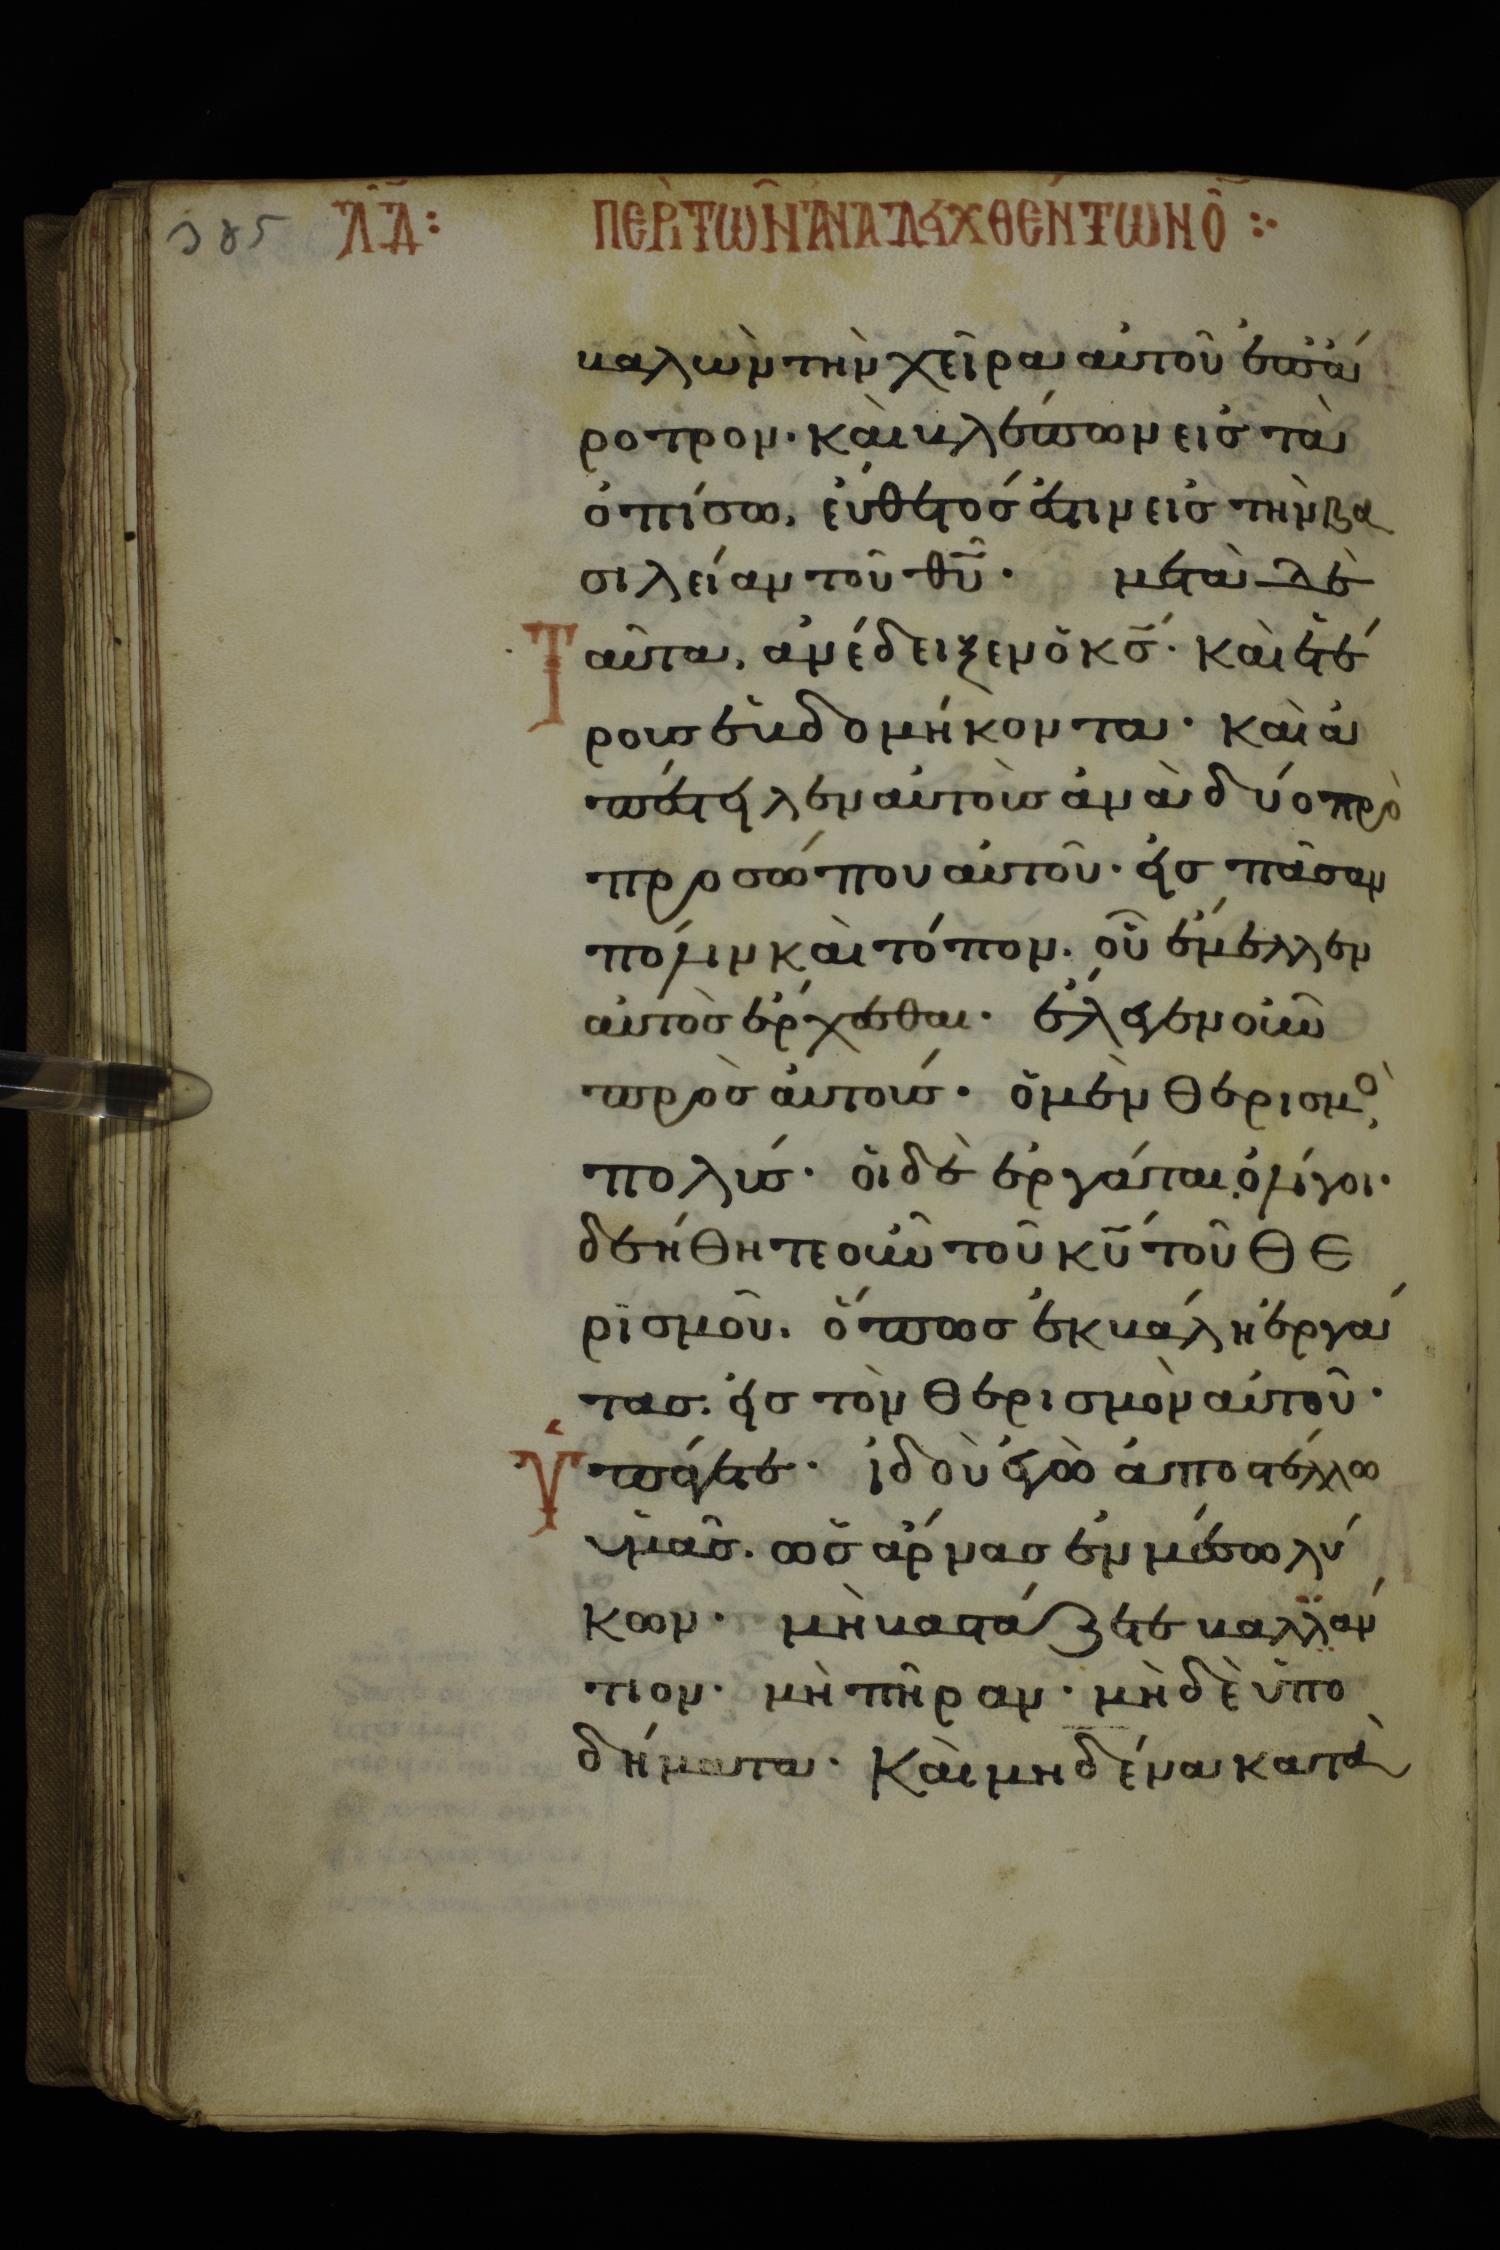 385 ΛΔ: ΠΕΡῚ ΤΩ͂Ν ἈΝΑΔΕΙΧΘΕΝΤΩΝ Ο̄ :·
βαλὼν τὴν χεῖρα αὐτοῦ ἐπ ἄ
ροτρον· καὶ βλέπων εἰς τὰ
ὀπίσω, εὔθετός ἐστιν εἰς τὴν βα
σιλείαν τοῦ θῦ· μετὰ δὲ
Ταῦτα, ἀνέδειξεν ὁ κς̄· καὶ ἑτέ
ρους ἑβδομήκοντα· καὶ ἀ
πέστειλεν αὐτοὺς ἀνὰ δύο πρὸ
προσώπου αὐτοῦ· εἰς πᾶσαν
πόλιν καὶ τόπον. οὗ ἔμελλεν
αὐτὸς ἔρχεσθαι· ἔλεγεν οὖν
πρὸς αὐτούς· ὁ μὲν θερισμὸς,
πολύς· οἱ δὲ ἐργάται, ὀλίγοι·
δεήθητε οὖν τοῦ κῦ τοῦ θε
ρϊσμοῦ. ὅπως ἐκβάλη ἐργά
τας. εἰς τὸν θερισμὸν αὐτοῦ·
Ὑπάγετε· ἰδοὺ ἐγὼ ἀποστέλλω
ὑμᾶς. ὡς ἄρνας ἐν μέσω λύ
κων· μὴ βαστάζετε βαλλάν
τιον· μὴ πῆραν· μὴ δὲ ὑπο
δήματα· Καὶ μηδένα κατὰ